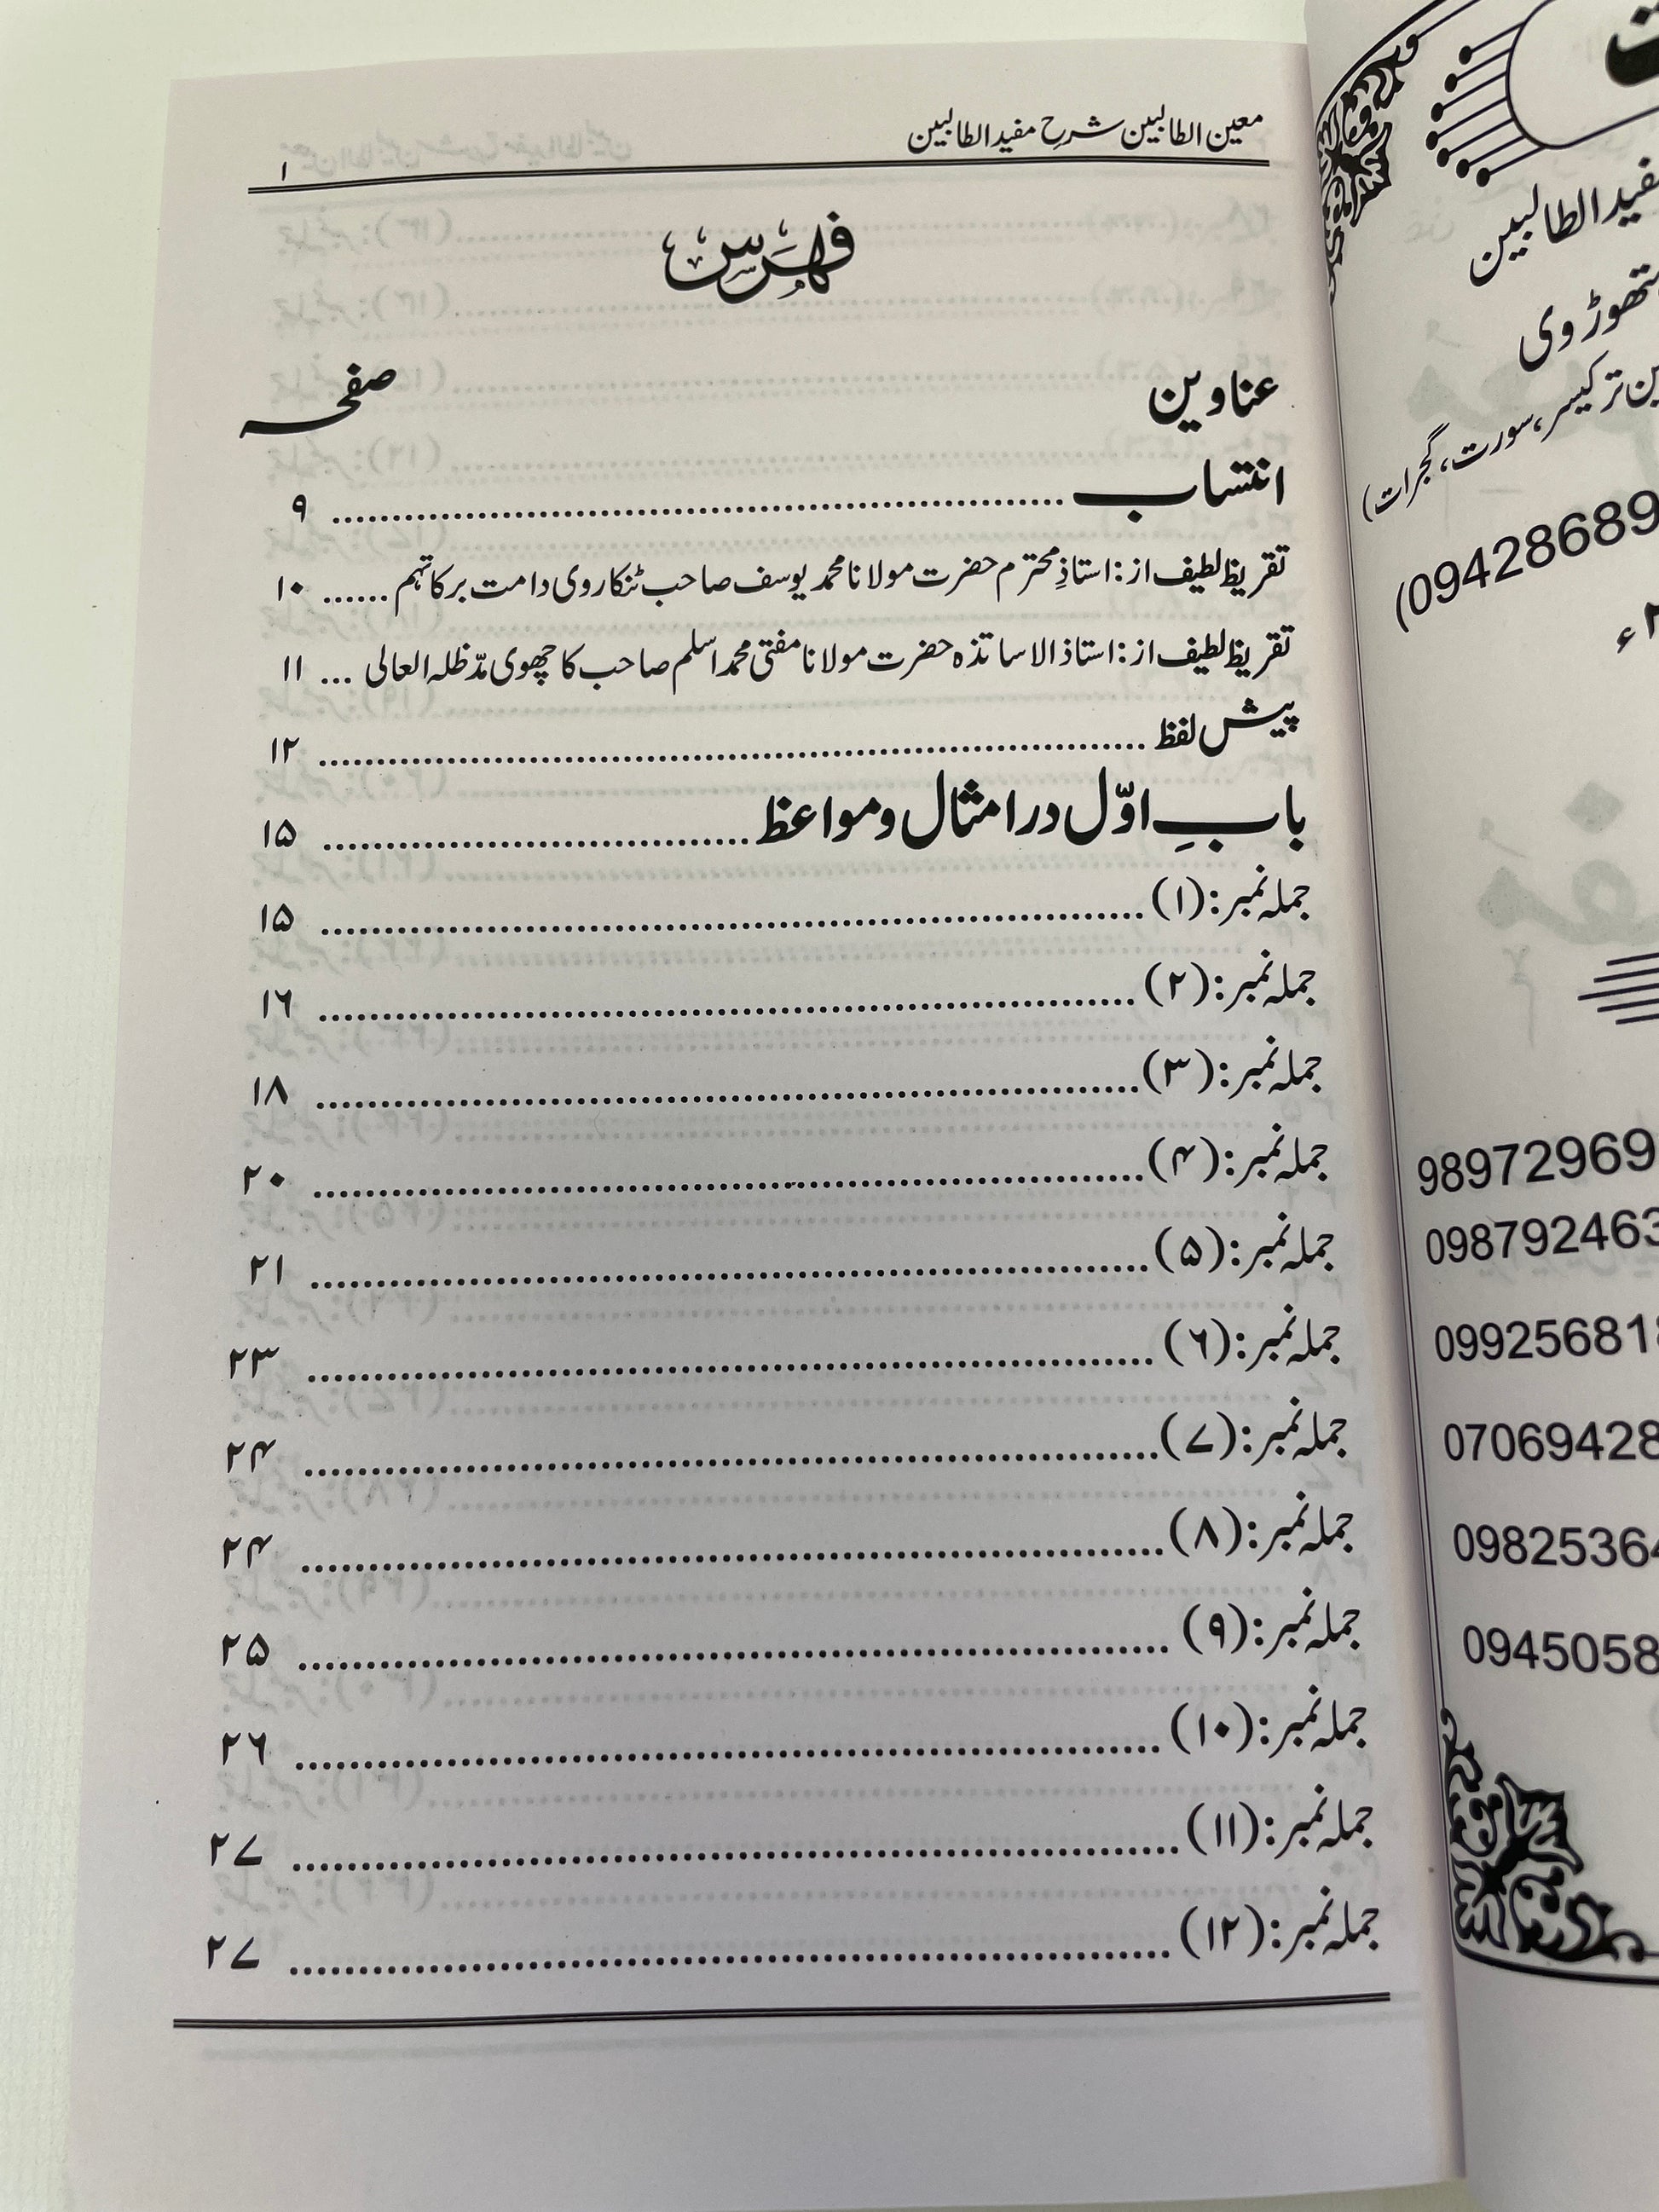 معین الطالبین شرحِ مفید الطالبین ۱
فہرس
عناوین صفحہ
انتساب ۹
تقریظ لطیف از: استاذِ محترم حضرت مولانا محمد یوسف صاحب ٹنکاروی دامت برکاتہم ...... ۱۰
تقریظ لطیف از: استاذ الاساتذہ حضرت مولانا مفتی محمد اسلم صاحب کاچھوی مدّظلہ العالی ... ۱۱
پیش لفظ ۱۲
بابِ اوّل در امثال و مواعظ ۱۵
جملہ نمبر: (۱) ۱۵
جملہ نمبر: (۲) ۱۶
جملہ نمبر: (۳) ۱۸
جملہ نمبر: (۴) ۲۰
جملہ نمبر: (۵) ۲۱
جملہ نمبر: (۶) ۲۳
جملہ نمبر: (۷) ۲۴
جملہ نمبر: (۸) ۲۴
جملہ نمبر: (۹) ۲۵
جملہ نمبر: (۱۰) ۲۶
جملہ نمبر: (۱۱) ۲۷
جملہ نمبر: (۱۲) ۲۷
مفید الطالبین
ترکیسر، سورت، گجرات)
(09428689
98972969
098792463
09925681
07069428
09825364
0945058